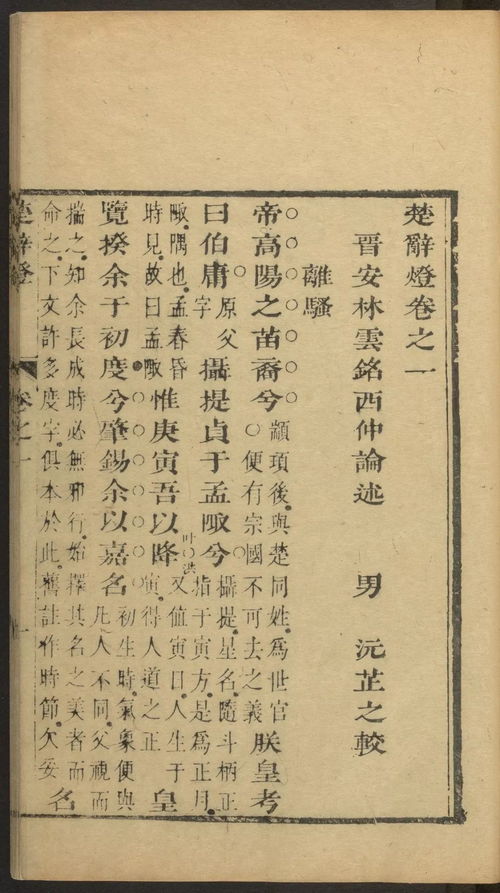 楚辭燈卷之一
晉安林雲銘西仲論述　男　沅芷之較
離騷
帝高陽之苗裔兮顓頊後與楚同姓爲世官便有宗國不可去之義朕皇考
曰伯庸原父字攝提貞于孟陬兮攝提星名隨斗柄正指于寅方是爲正月
陬隅也孟春昏時見故曰孟陬惟庚寅吾以降叶洪又值寅日人生于寅得人道之正皇
覽揆余于初度兮肇錫余以嘉名初生時氣象便與凡人不同父視而
揣之知余長成時必無邪行始擇其名之美者而命之下文許多度字俱本於此舊註作時節欠妥名
楚辭燈　卷之一　一